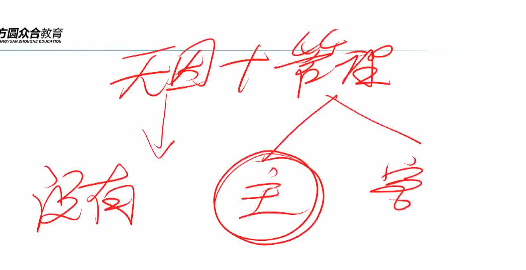 方圆众合教育
FANGYUAN ZHONGHE EDUCATION
无因+管理
没有 主 客